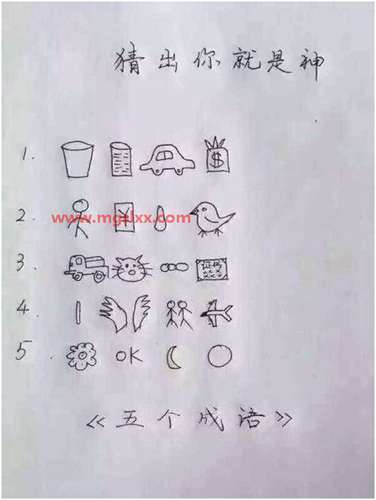 猜出你就是神
1.
$
2.
¥
www.mgslxx.com
3.
4.
5
OK
《五个成语》